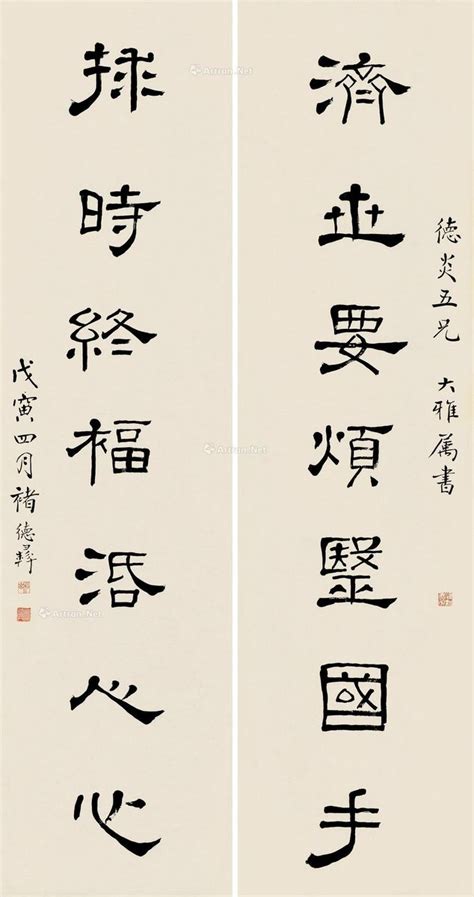 德炎五兄 大雅属書
濟世要煩醫國手
捄時終福活心
戊寅四月褚德彝
Artron.Net
Artron.Net
Artron.Net
Artron.Net